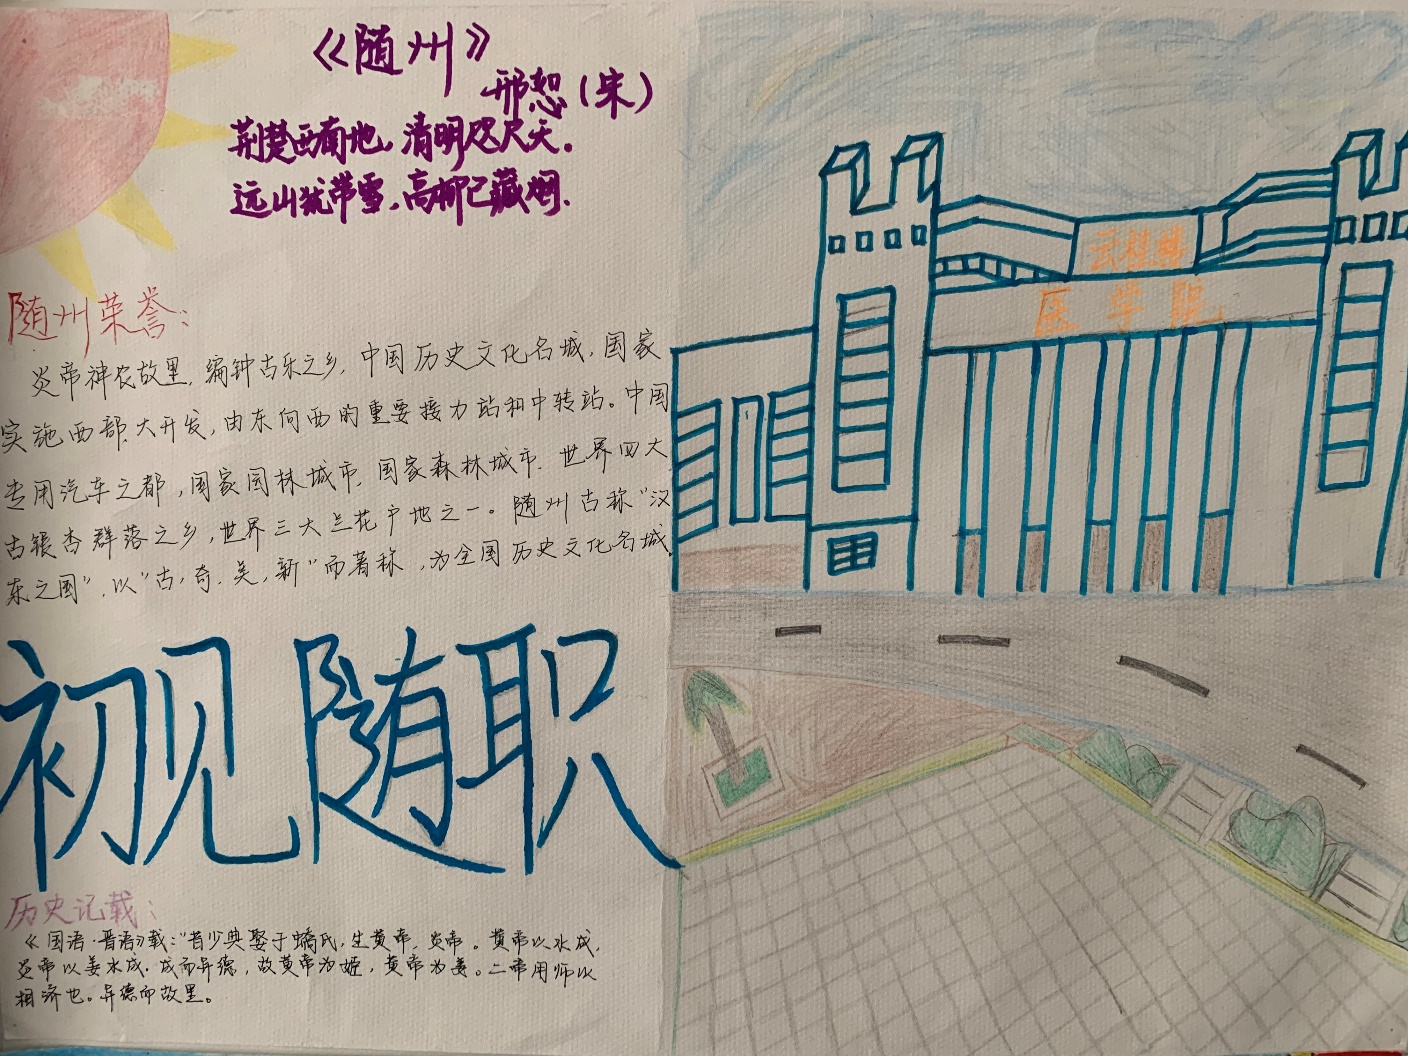 《随州》
邢恕（宋）
荆楚西南地，清明咫尺天。
远山犹带雪，高柳已藏烟.
随州荣誉：
炎帝神农故里，编钟古乐之乡，中国历史文化名城，国家
实施西部大开发，由东向西的重要接力站和中转站。中国
专用汽车之都，国家园林城市，国家森林城市，世界四大
古银杏群落之乡，世界三大兰花产地之一。随州古称“汉
东之国”，以“古，奇，美，新”而著称，为全国历史文化名城.
初见随职
历史记载：
《国语·晋语》载：“昔少典娶于蟜氏，生黄帝，炎帝。黄帝以水成，
炎帝以姜水成．成而异德，故黄帝为姬，黄帝为姜。二帝用师以
相济也。异德而故里。
云桂楼
医学院